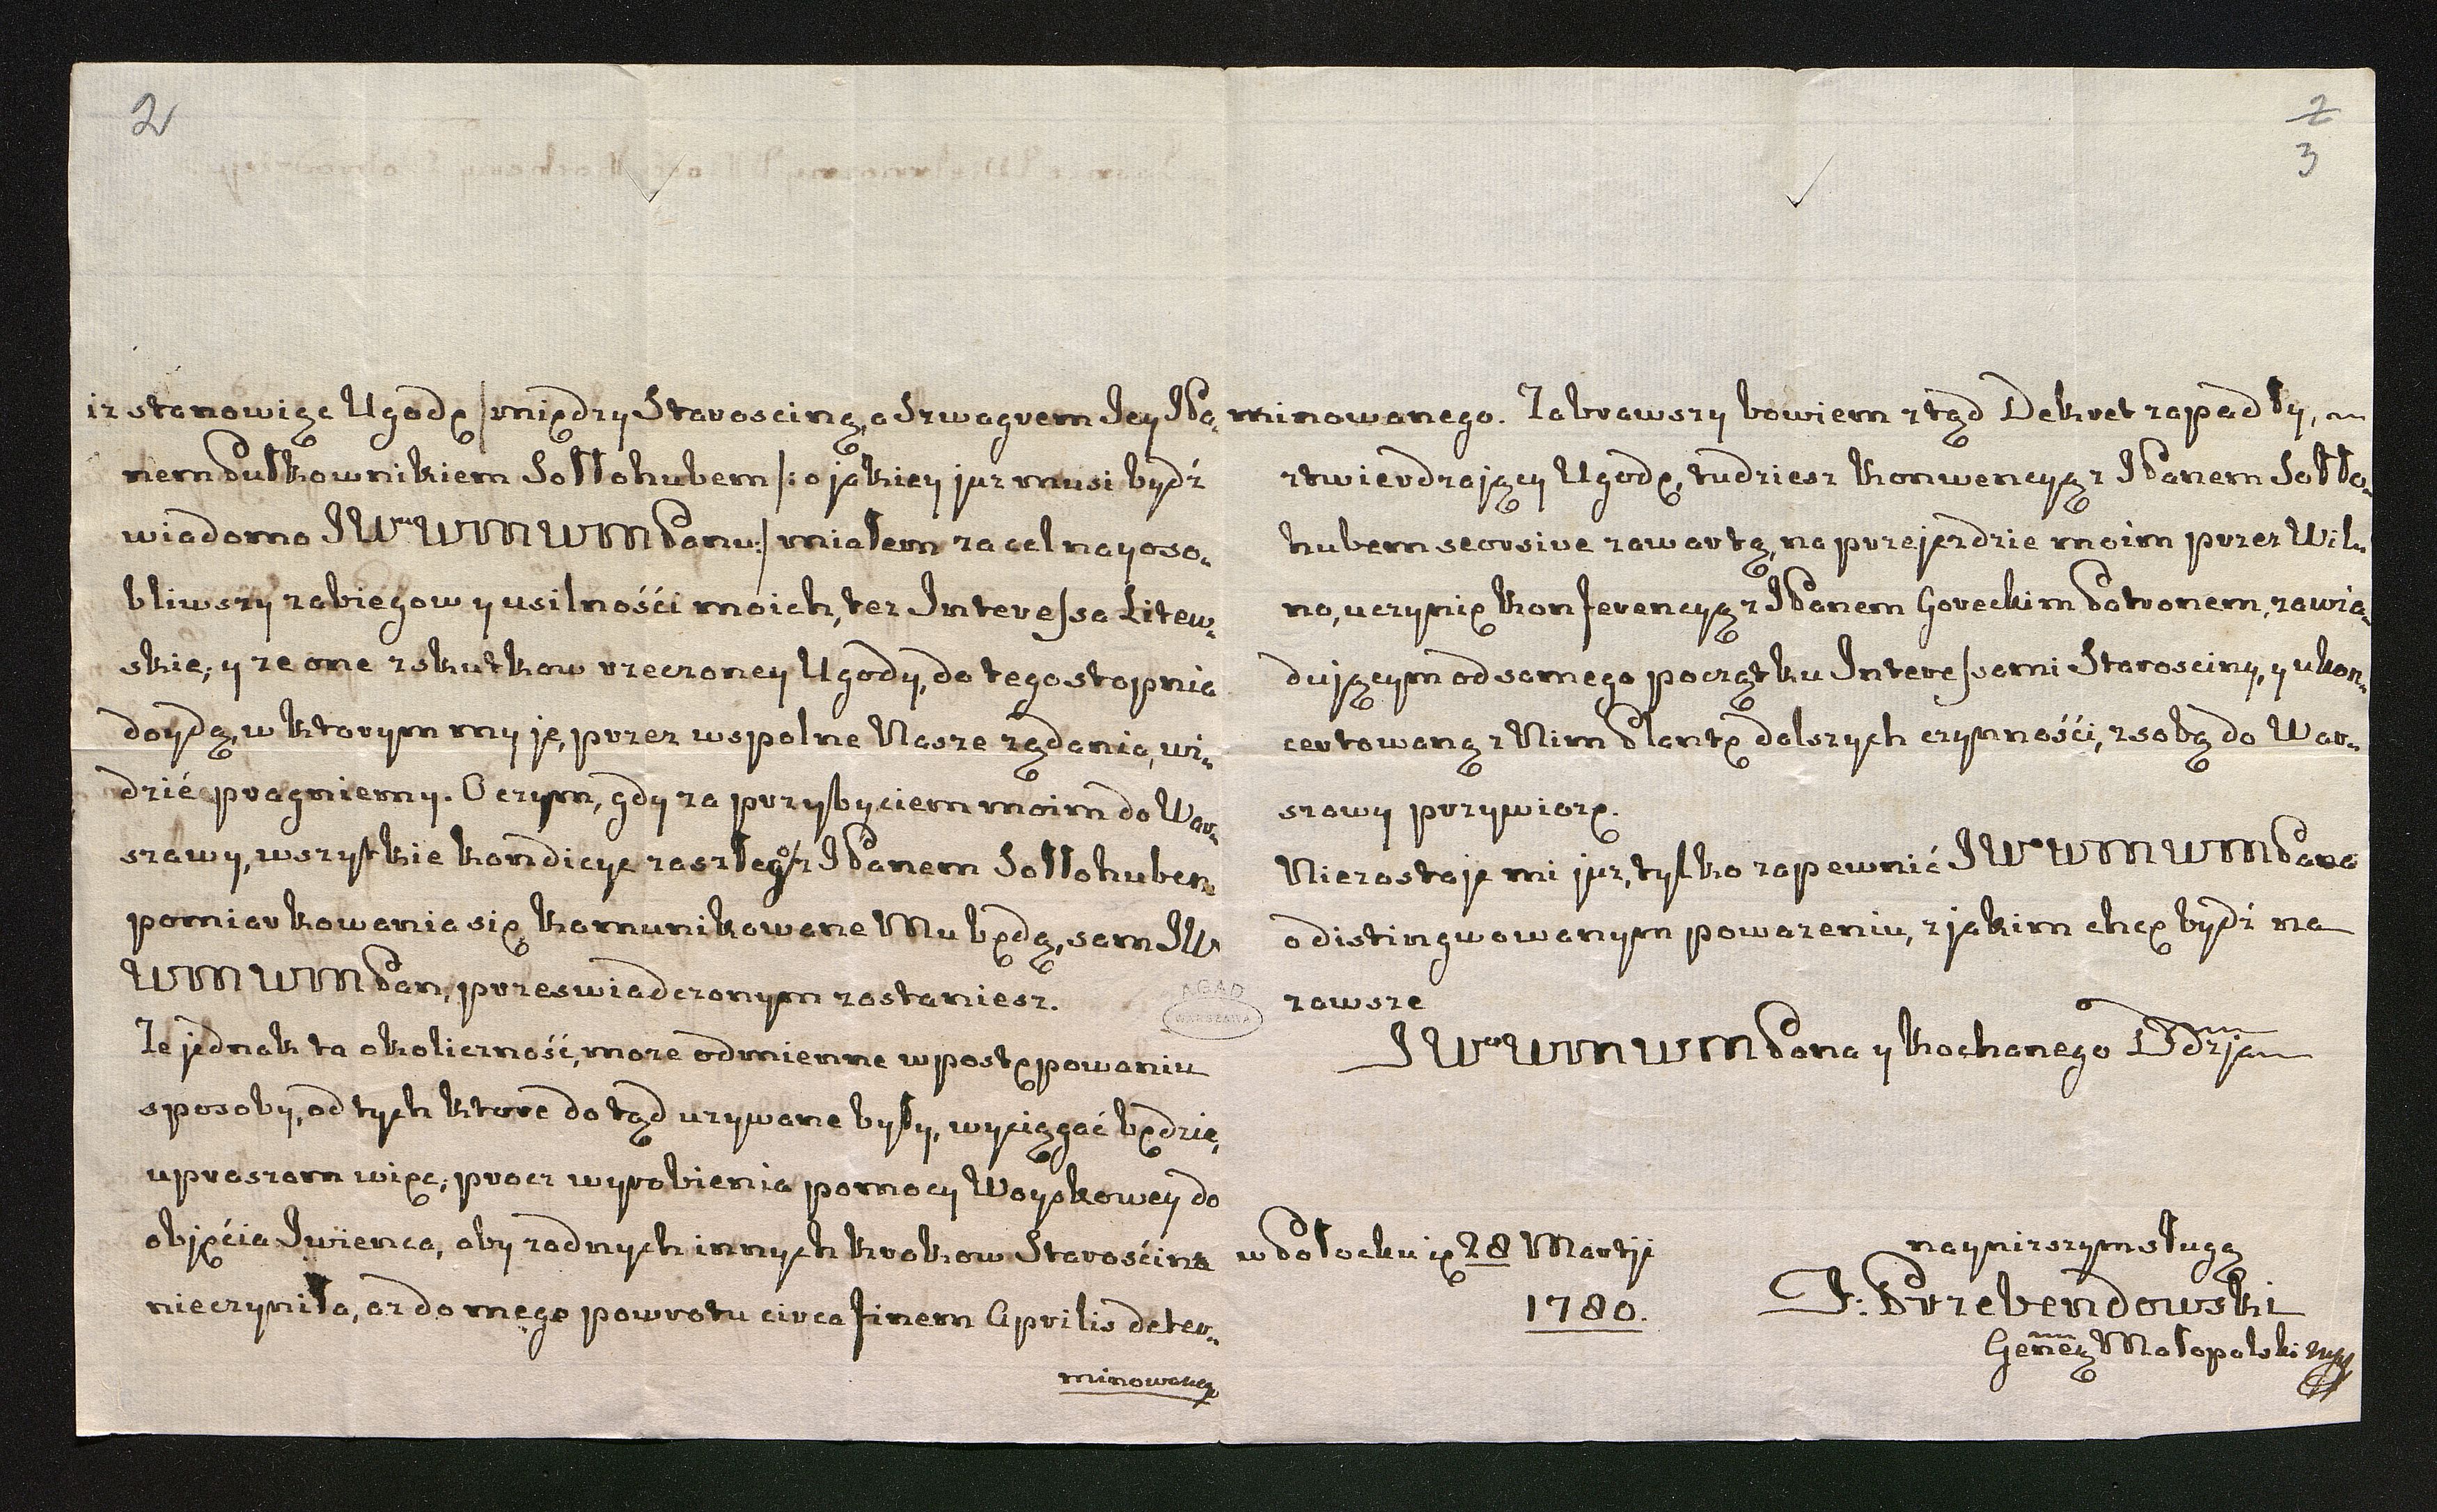 2
iz stanowiąc Ugodę /: między Starosciną, a Szwagrem Jey JPa-
nem Pułkownikiem Sołłohubem /: o jakiey juz musi bydź
wiadomo JWu WM WM Panu :/ miałem za cel nayoso-
bliwszy zabiegow y usilnośći moich, tez Interessa Litew-
skie; y ze one z skutkow rzeczoney Ugody, do tego stopnia
doydą, w ktorym my je, przez wspolne Nasze ządania, wi-
dzić pragniemy. O czym, gdy za przybyciem moim do War-
szawy, wszystkie kondicye zaszłego z JPanem Sołłohubem
pomiarkowania się, kamunikowane Mu będą, sam JW
WM WM Pan, przeswiadczonym zostaniesz.
Ze jednak ta okoliczność, moze odmienne w postępowaniu
sposoby, od tych ktore do tąd uzywane były, wyciągać będzie,
upraszam więc, procz wyrobienia pomocy Woyskowey do
objęćia Iwieńca, aby zadnych innych krokow Starośćina
nieczyniła, az do mego powrotu circa finem Aprilis deter-
minowaneg
2
3
minowanego. Zabrawszy bowiem ztąd Dekret zapadły,
ztwierdzający Ugodę, tudziesz Konwencyą z JPanem Sołło-
hubem seorsive zawartą, na przejezdzie moim przez Wil-
no, uczynię Konferencyą z JPanem Goreckim Patronem, zawia-
dującym od samego początku Interessami Starosciny, y ukon-
certowaną z Nim Plantę dalszych czynnośći, z sobą do War-
szawy przywiozę.
Niezostaje mi juz, tylko zapewnić JWo WM WM Pana
o distingwowanym powazeniu, z jakim chcę bydź na
zawsze
JWo WM WM Pana y Kochanego Ddzja
w Połocku d. 28 Martji
1780.
naynizszym sługą
J: Przebendowski
Genēą Małopolski mp
AGAD
WARSZAWA